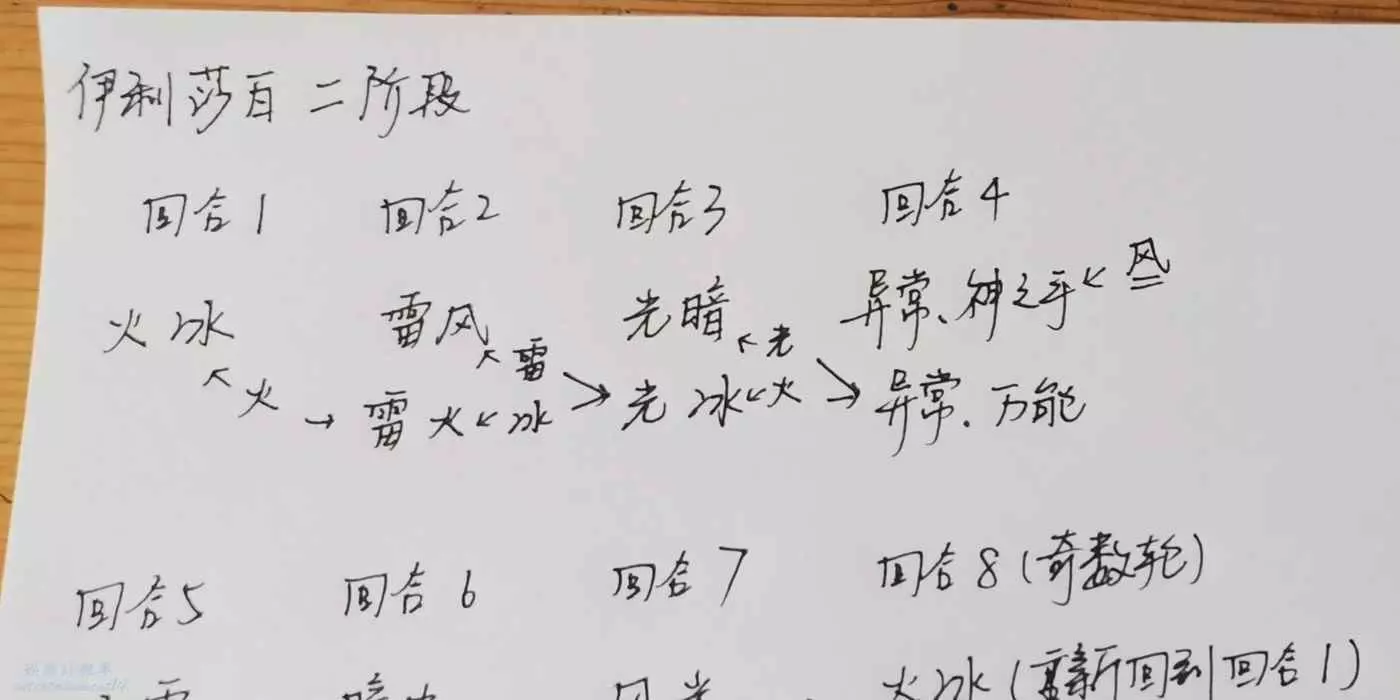 伊利莎白 二阶段
回合1 回合2 回合3 回合4
火冰 雷风 光暗 异常、神之手 ← 风
↖火 ↖雷 ↖光
→ 雷 火←冰 → 光 冰←火 → 异常、万能
回合5 回合6 回合7 回合8(奇数轮)
雷 风光 火冰(重新回到回合1)